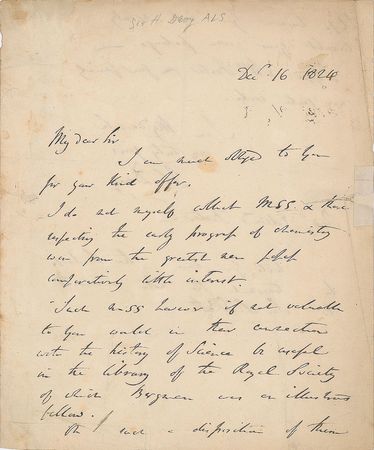 Sir H. Davy ALS
Decr 16 1824
My dear Sir
I am much obliged to you
for your kind offer.
I do not myself collect MSS & those
respecting the early progress of chemistry
even from the greatest men possess
comparatively little interest.
Such MSS however if not valuable
to you would in their connection
with the history of Science be useful
in the library of the Royal Society
of which Bergman was an illustrious
fellow.
such a disposition of them